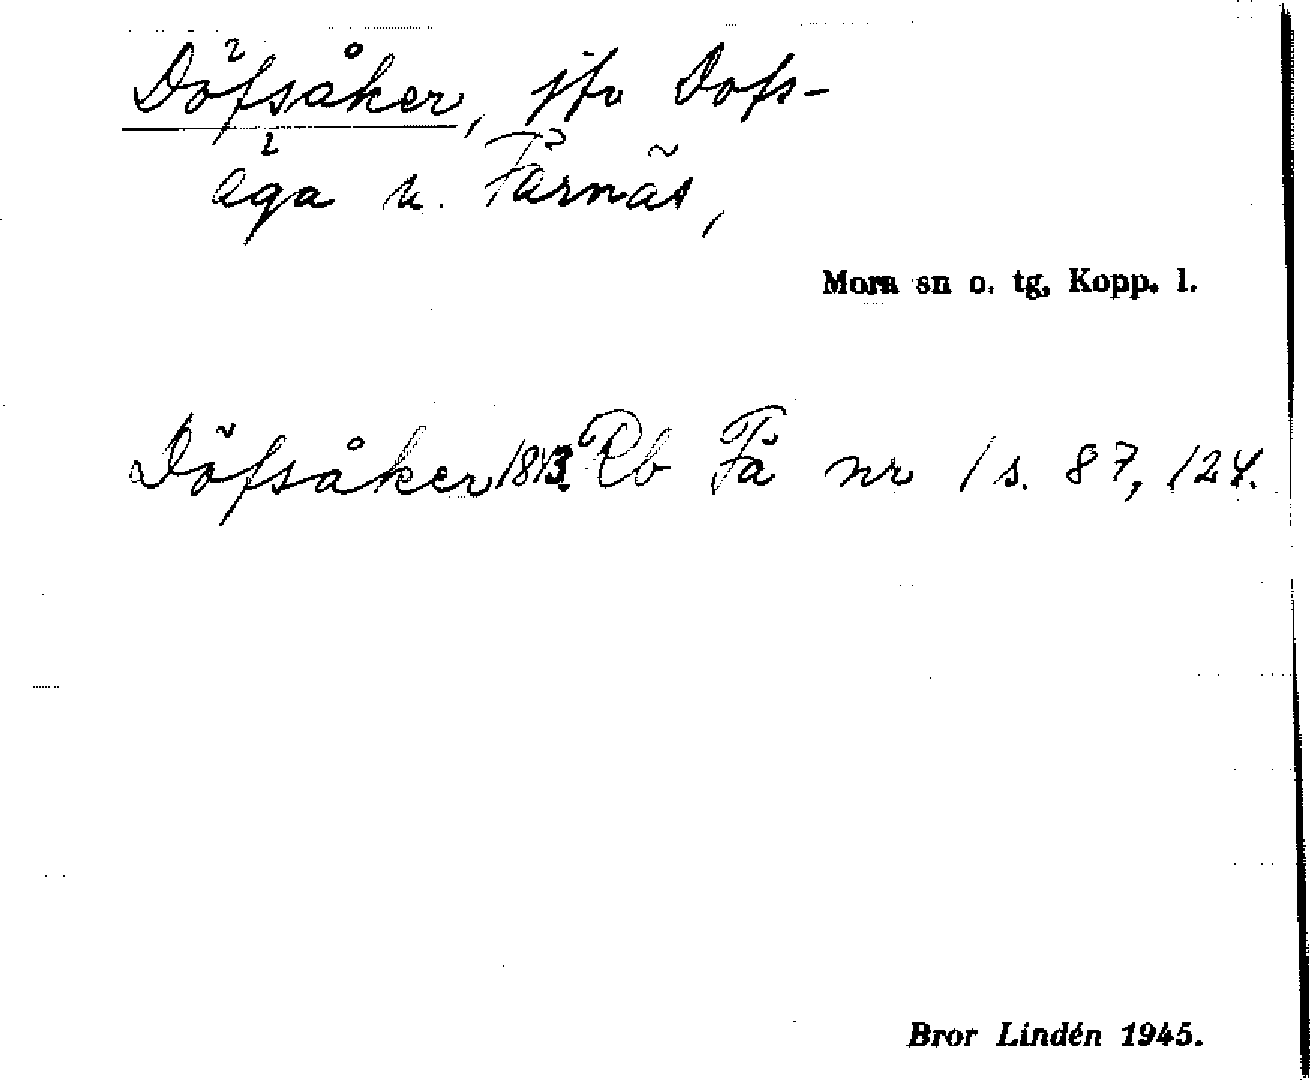 Döfsåker, jfr Dofs-
äga u. Färnäs,
Mora sn o. tg, Kopp. l.
Döfsåker 1813 Rb Få nr 1 s. 87, 124.
Bror Lindén 1945.